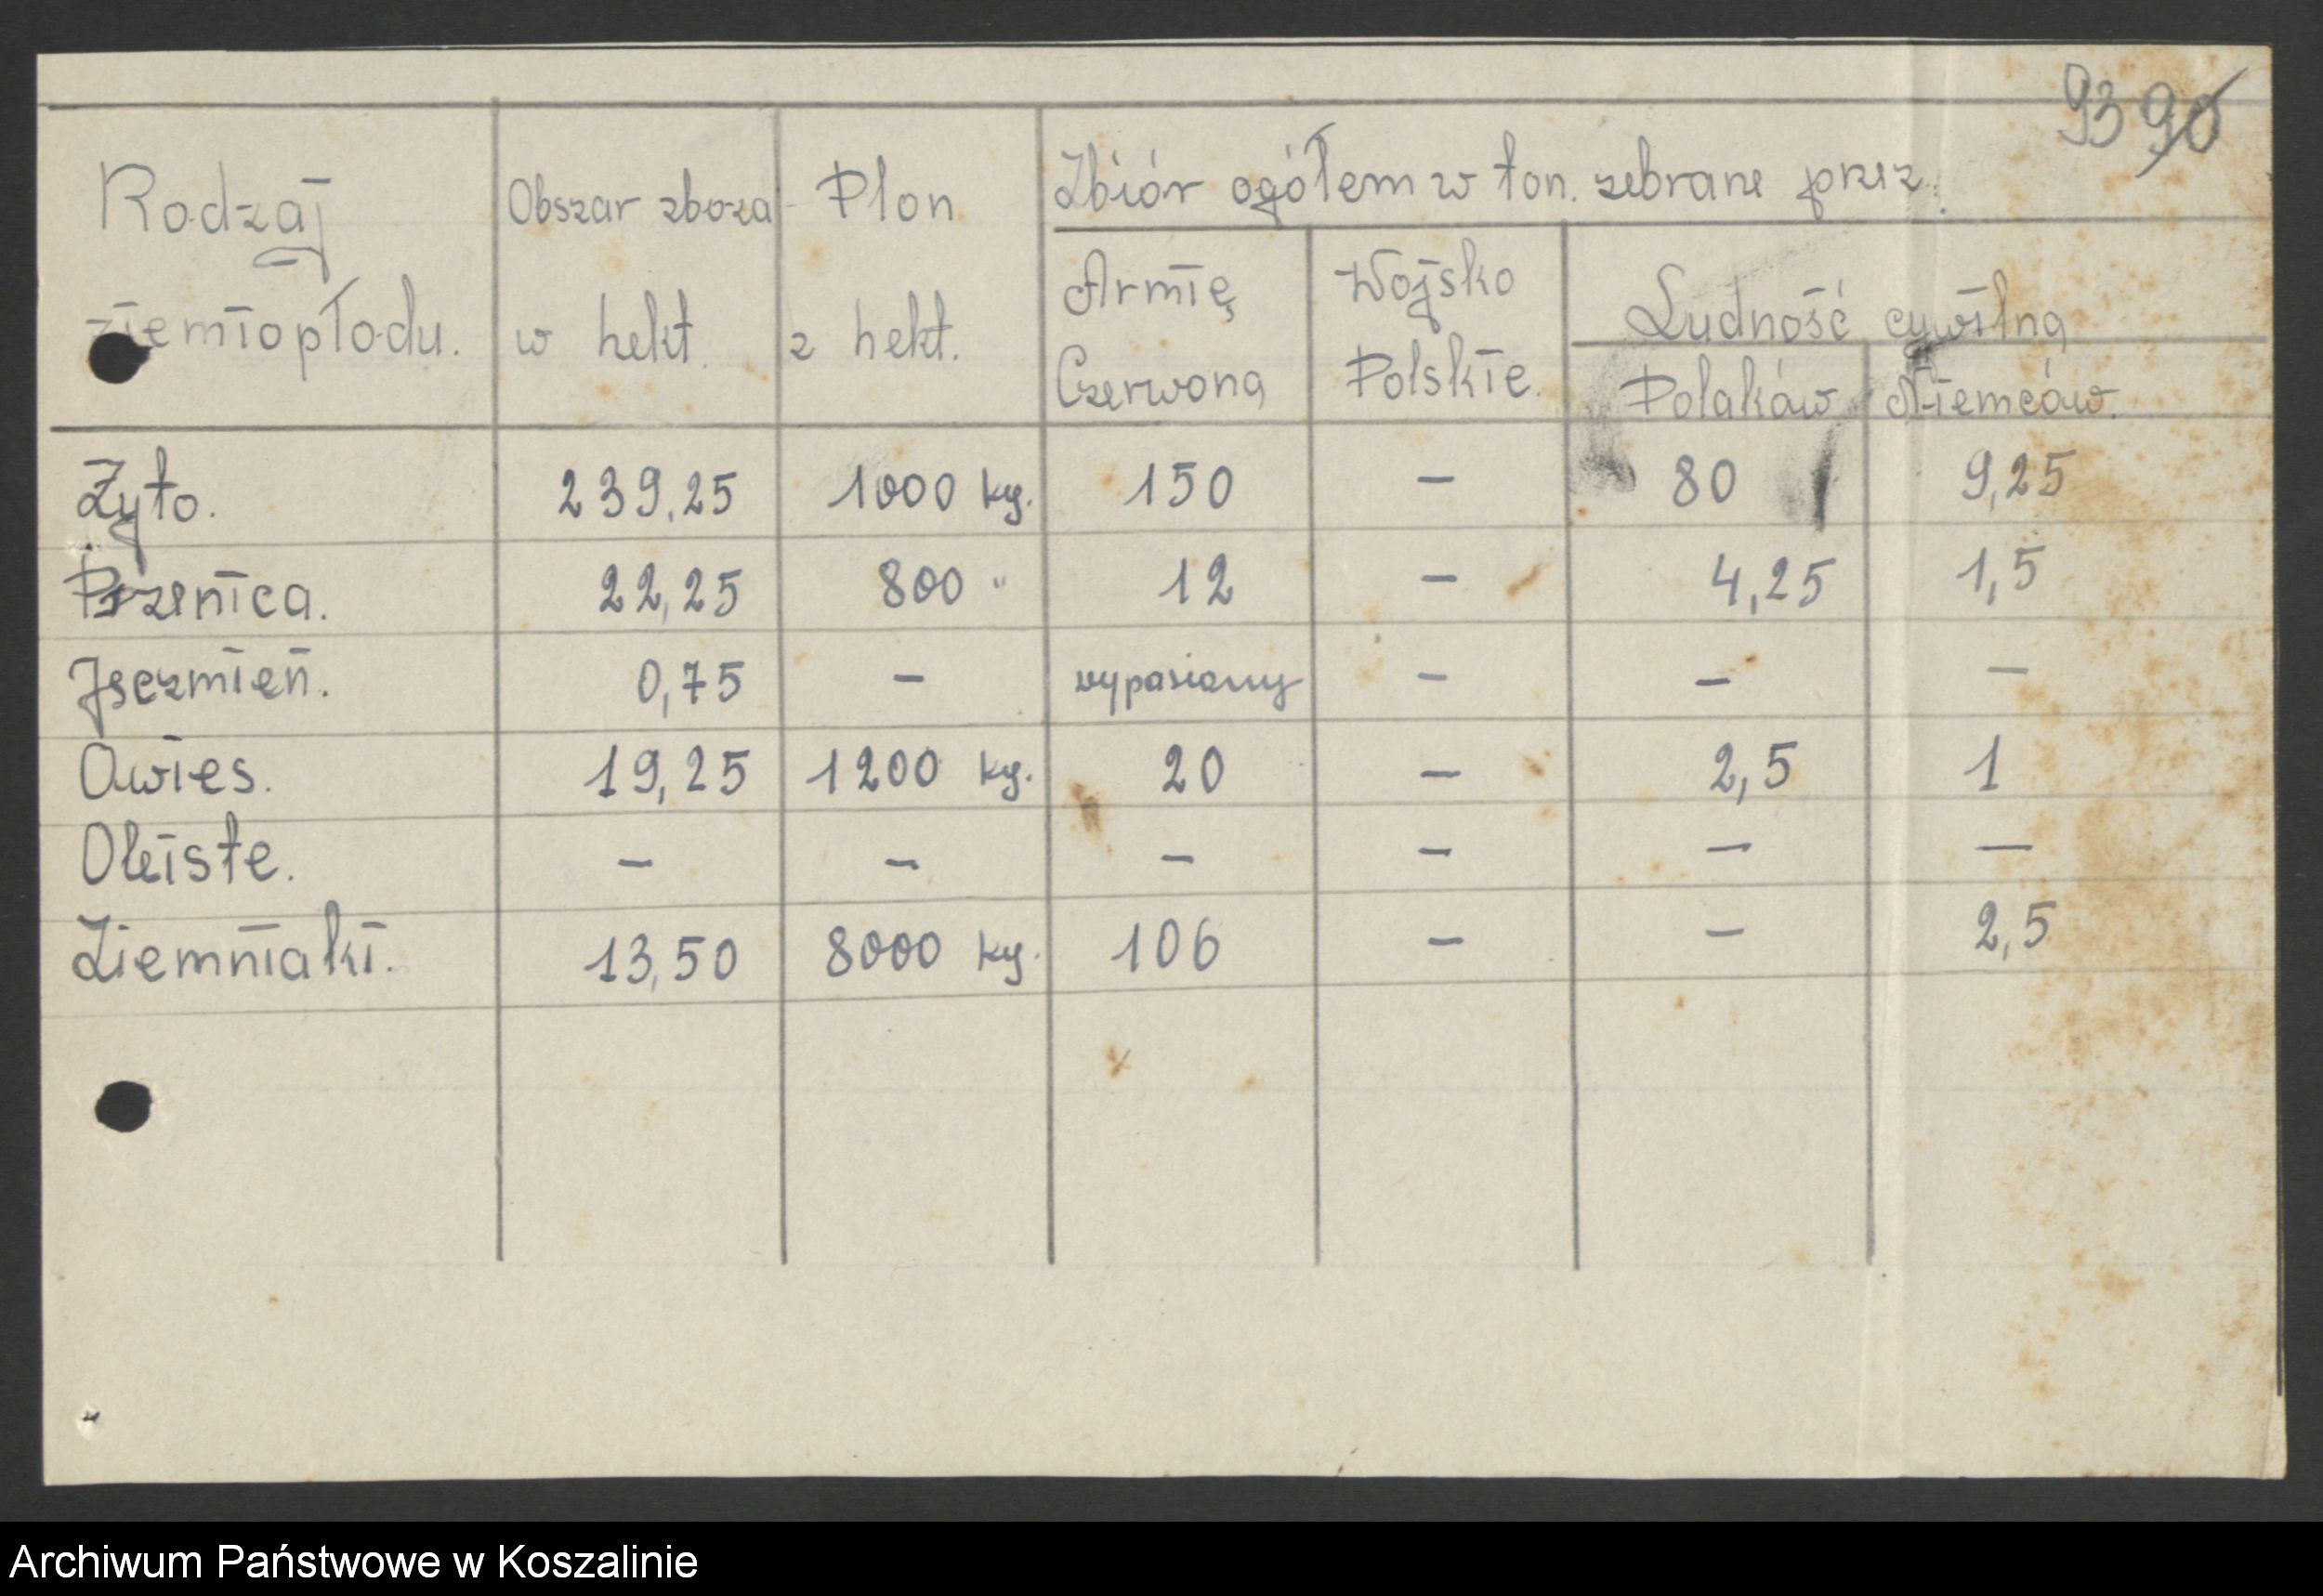 93 90
Rodzaj ziemiopłodu.
Obszar zboża w hekt.
Plon z hekt.
Zbiór ogółem w ton. zebrane przez:
Armię Czerwoną
Wojsko Polskie.
Ludność cywilną
Polaków
Niemców.
Żyto. 239,25 1000 kg. 150 – 80 9,25
Pszenica. 22,25 800 " 12 – 4,25 1,5
Jęczmień. 0,75 – wypasiony – – –
Owies. 19,25 1200 kg. 20 – 2,5 1
Oleiste. – – – – – –
Ziemniaki. 13,50 8000 kg. 106 – – 2,5
Archiwum Państwowe w Koszalinie